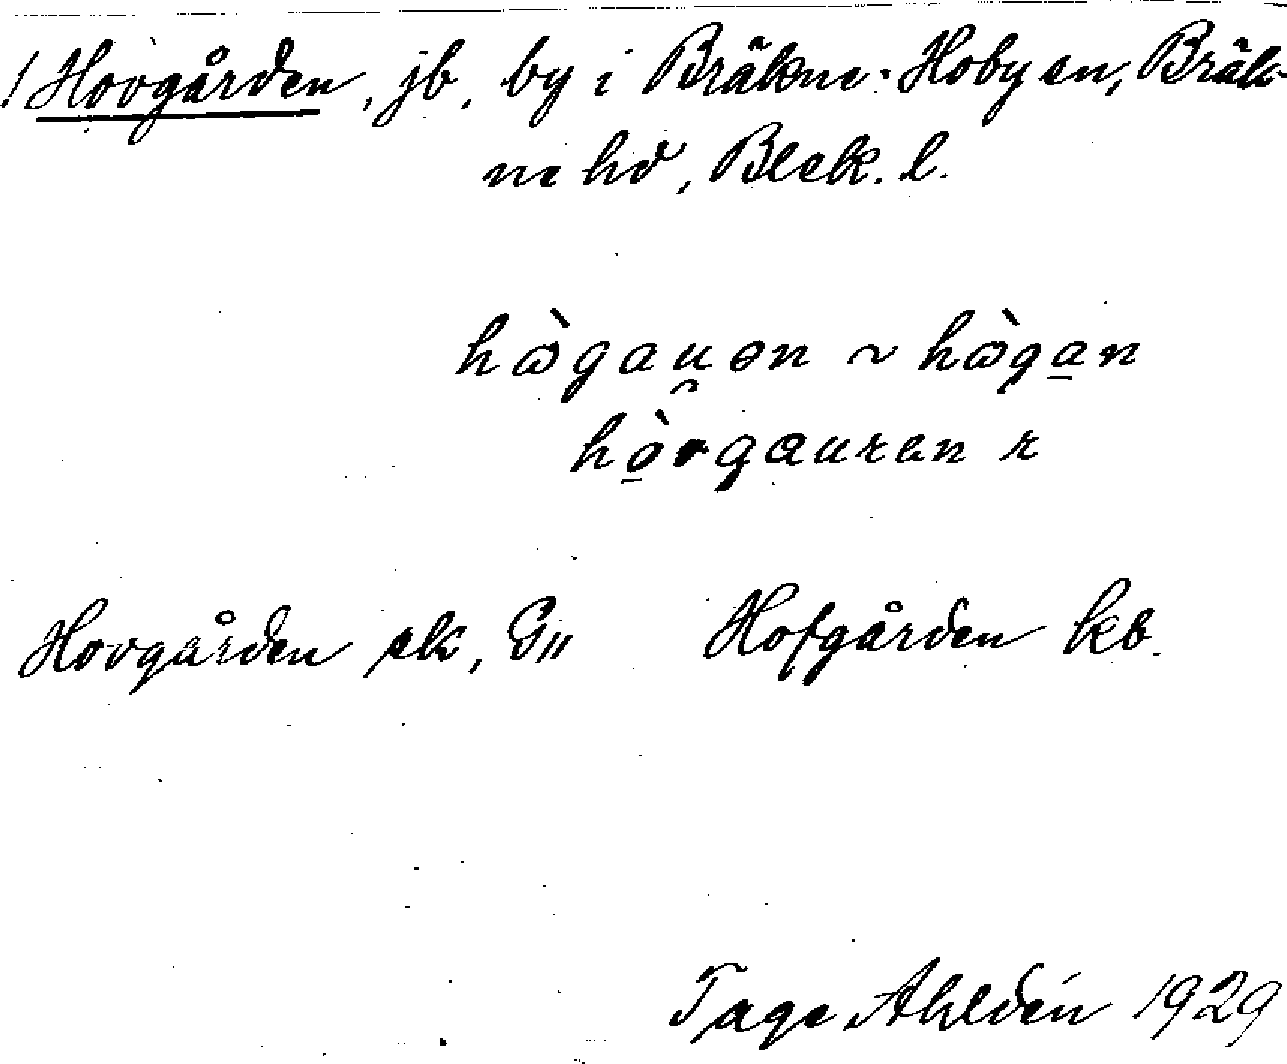 ! Hovgården, jb, by i Bräkne-Hoby sn, Bräk-
ne hd, Blek. l.
hὼgau̯ən ~ hὼga̱n
hò̱vgauren r
Hovgården ek, G„ Hofgården kb.
Tage Ahldén 1929